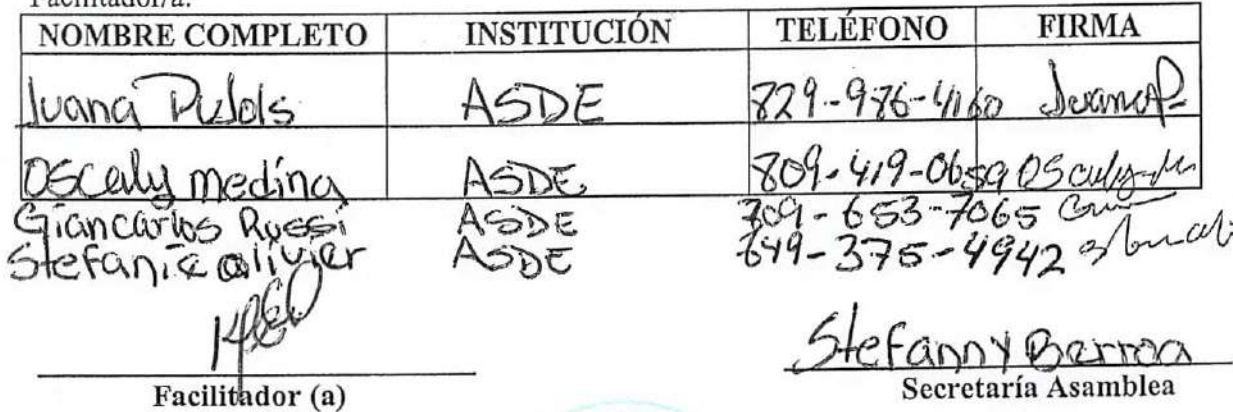 Facilitador/a:
NOMBRE COMPLETO INSTITUCIÓN TELÉFONO FIRMA
Juana Pujols ASDE 829-986-4160 Juana P
Oscaly medina ASDE 809-419-0659 Oscaly
Giancarlos Rossi ASDE 809-653-7065
Stefanie olivier ASDE 849-375-4942
Stefanny Berroa
Facilitador (a) Secretaría Asamblea